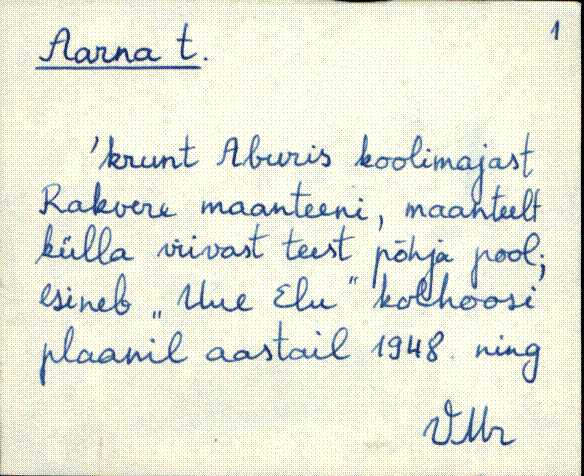 1
Aarna t.
'krunt Aburis koolimajast
Rakvere maanteeni, maanteelt
külla viivast teest põhja pool;
esineb „Uue Elu" kolhoosi
plaanil aastail 1948. ning
VMr